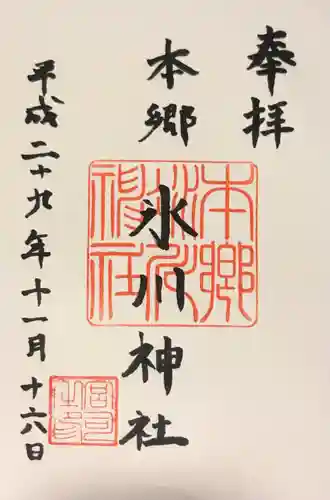 奉拝
本郷
氷川神社
平成二十九年十一月十六日
本郷氷川神社